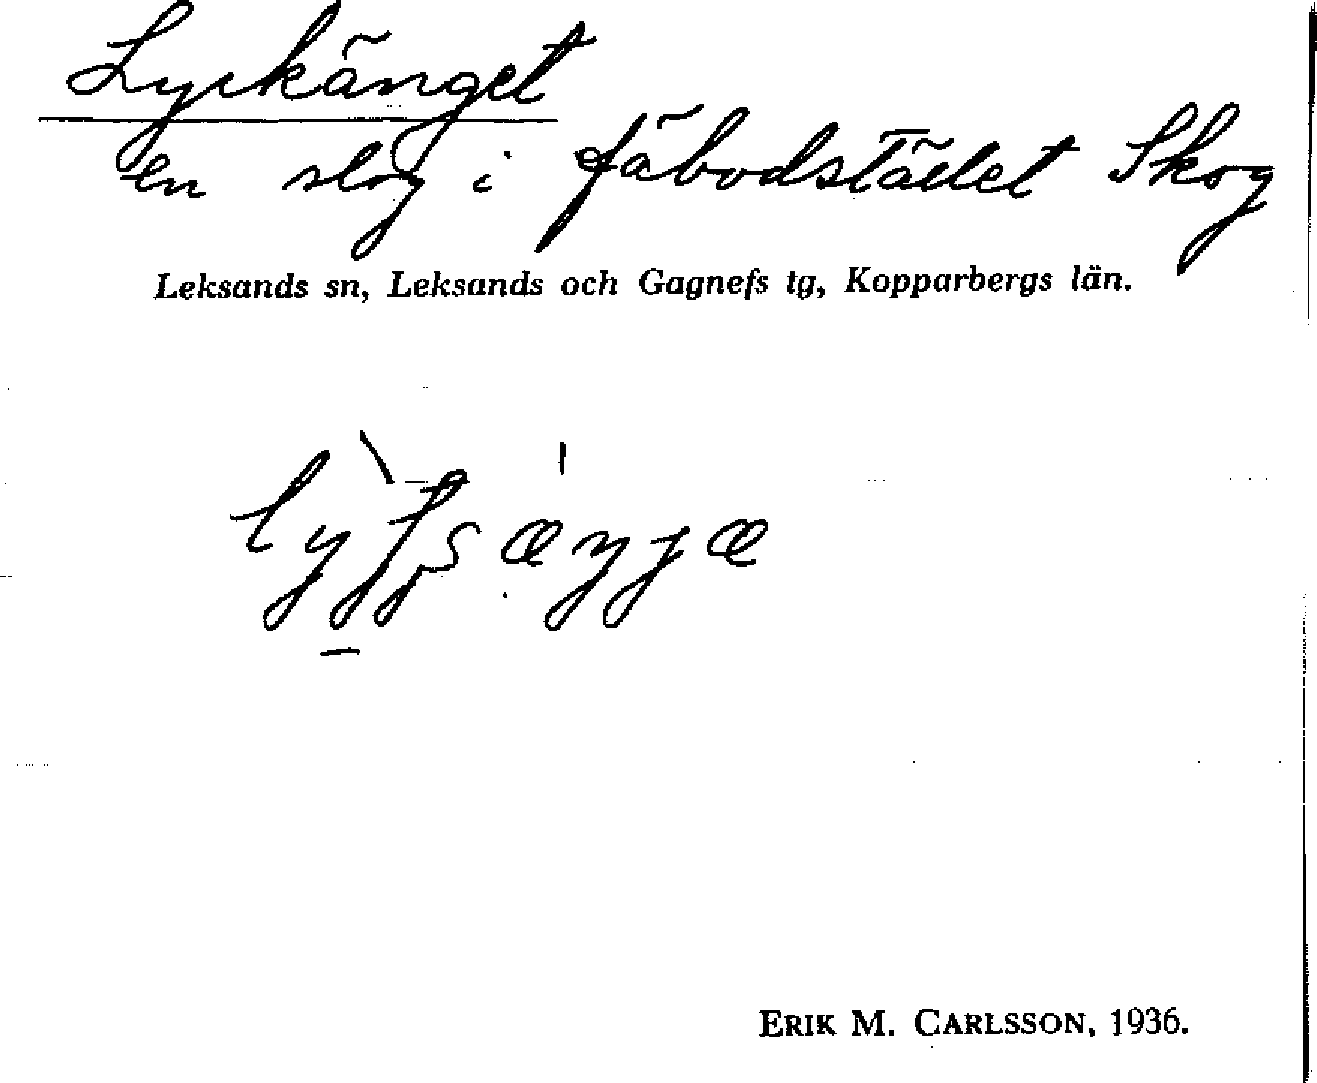 Lyckänget
en slog i fäbodstället Skog
Leksands sn, Leksands och Gagnefs tg, Kopparbergs län.
ERIK M. CARLSSON, 1936.